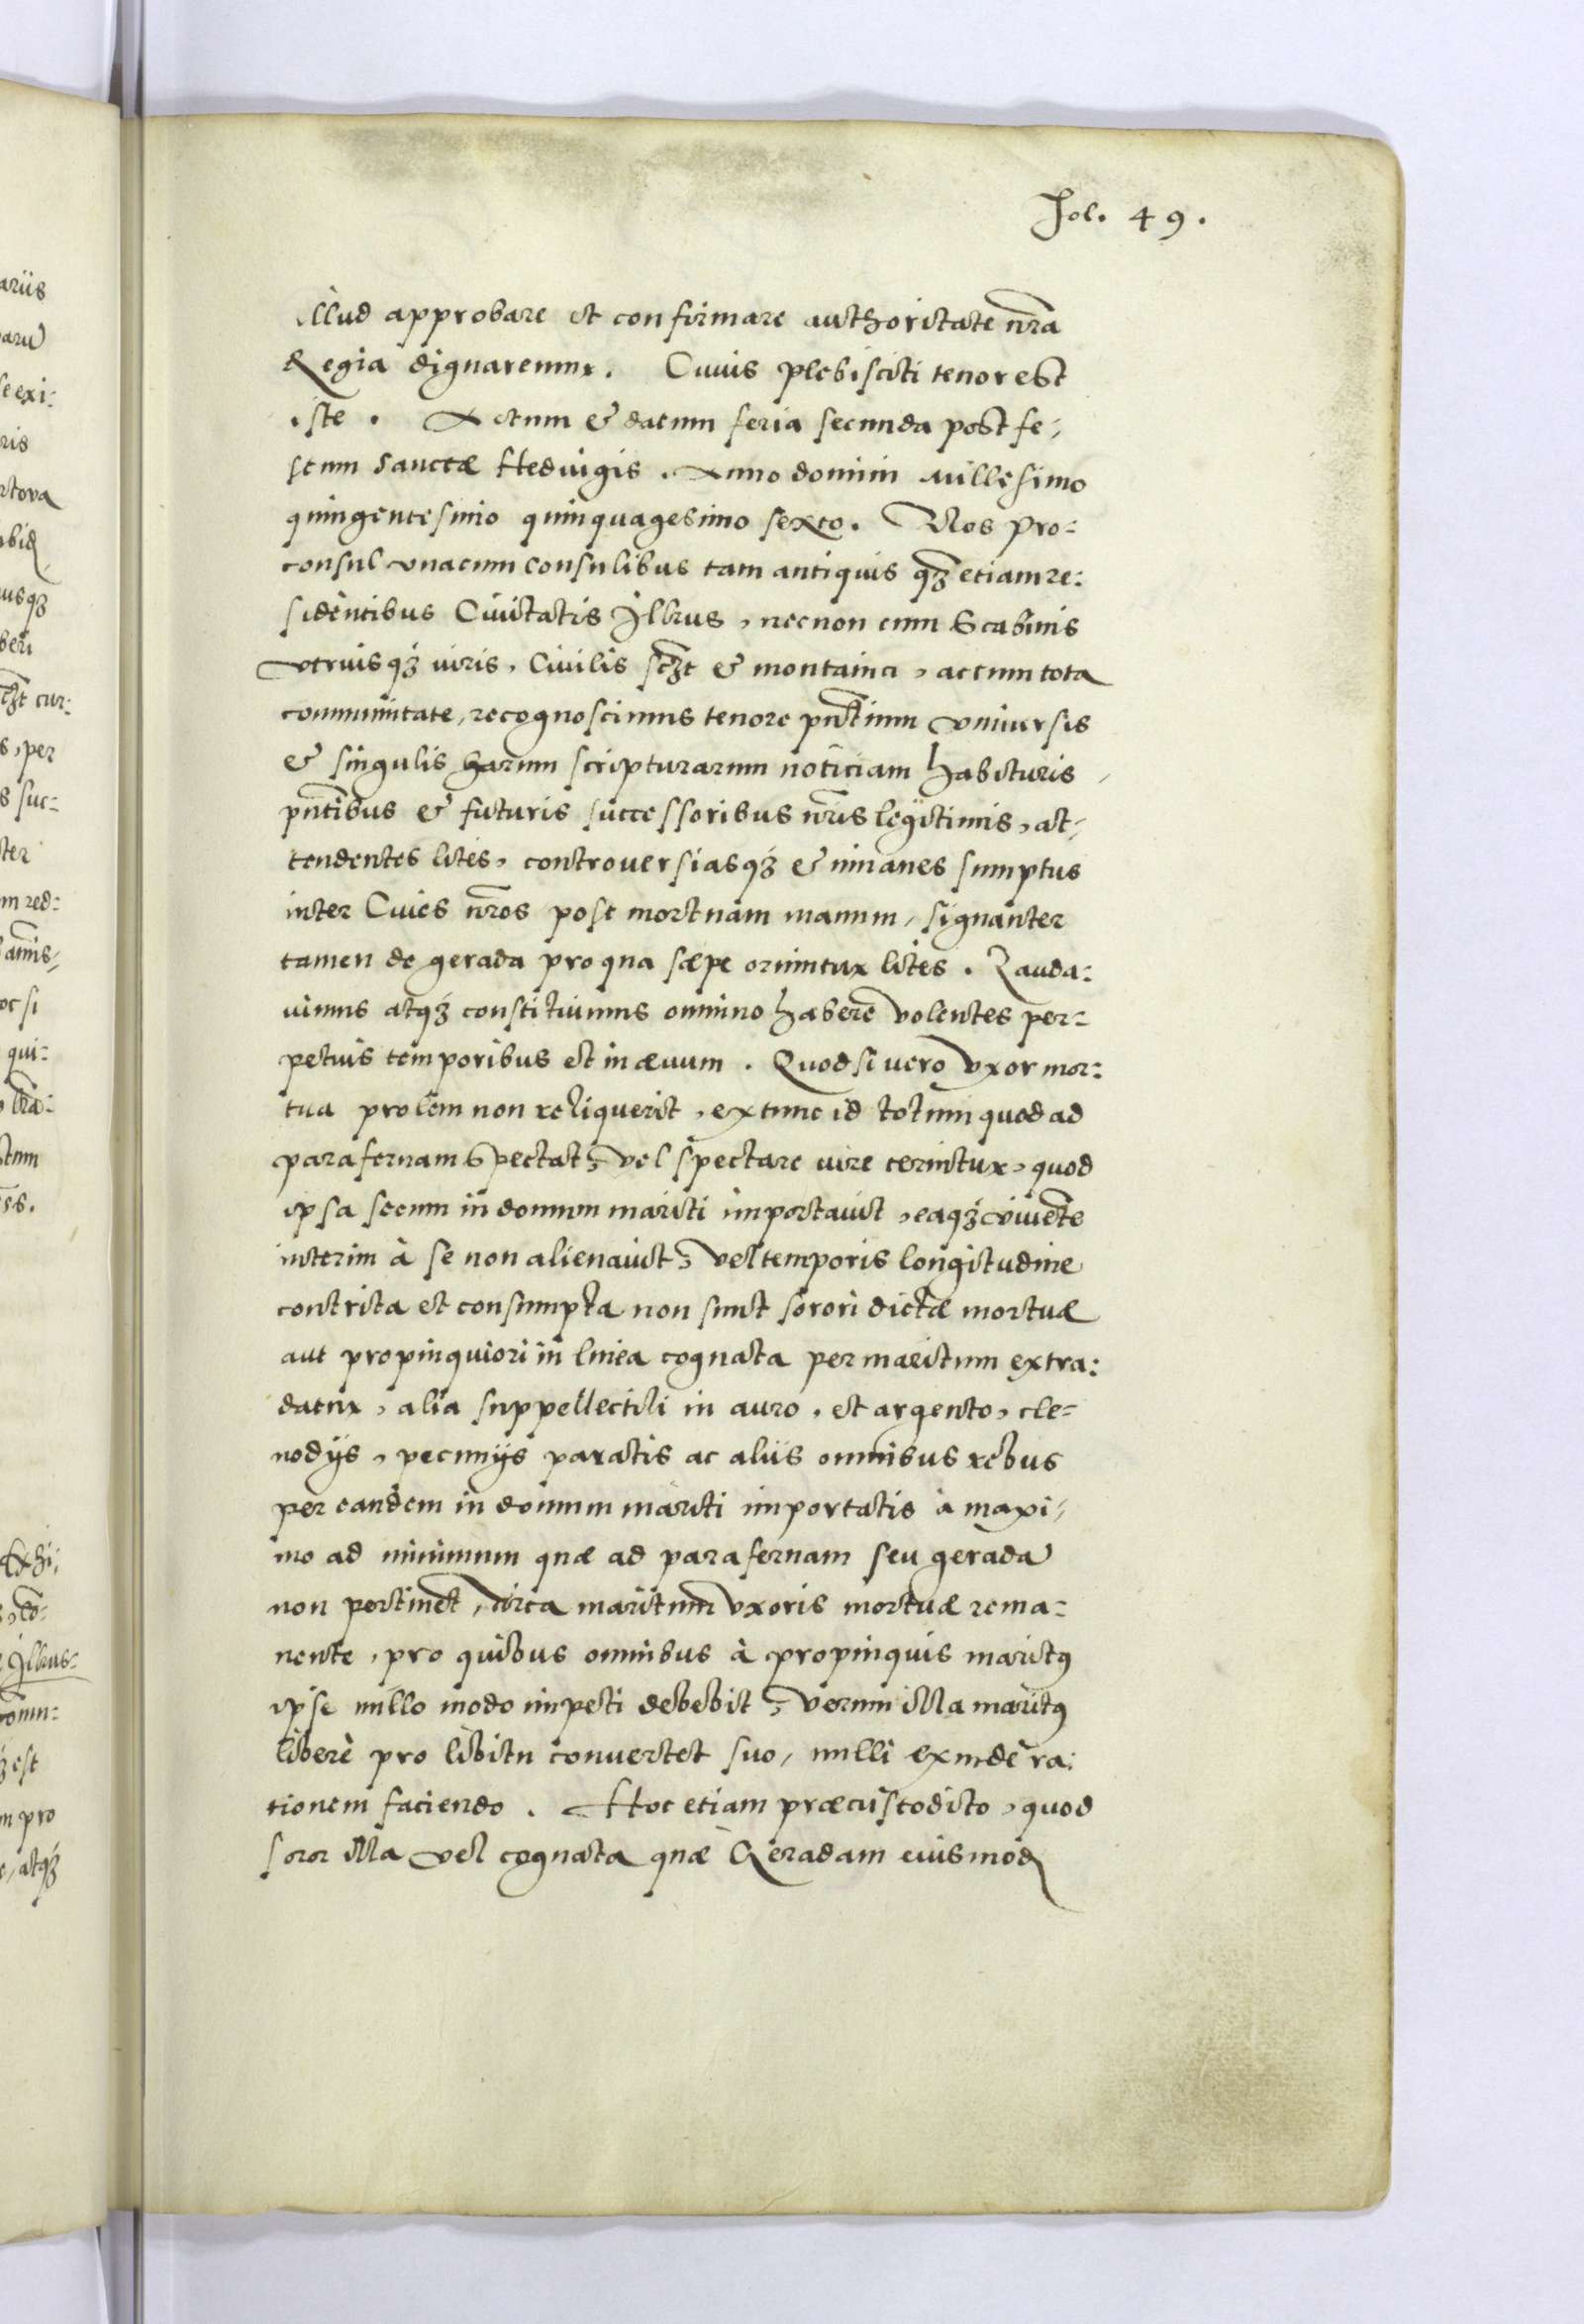 Fol. 49.
illud approbare et confirmare authoritate nr̃a
Regia dignaremur. Cuius plebisciti tenor est
iste. Actum & datum feria secunda post fe-
stum sanctæ Heduigis. Anno domini millesimo
quingentesimo quinquagesimo sexto. Nos Pro:
consul vnacum Consulibus tam antiquis qꝫ etiam re:
sidentibus Ciuitatis Jlkus, necnon cum Scabinis
vtriusqꝫ iuris, Ciuilis sc̃ꝫt & montani, ac cum tota
communitate, recognoscimus tenore pñtium vniuersis
& singulis harum scripturarum noticiam habituris
pñtibus & futuris successoribus nr̃is legitimis, at-
tendentes lites, controuersiasqꝫ & inanes sumptus
inter Ciues nr̃os post mortuam manum, signanter
tamen de gerada pro qua sæpe oriuntur lites. Lauda:
uimus atqꝫ constituimus omnino habere volentes per:
petuis temporibus et in æuum. Quod si vero vxor mor:
tua prolem non reliquerit, ex tunc id totum quod ad
parafernam spectat, vel spectare iure cernitur, quod
ipsa secum in domum mariti importauit, eaqꝫ viuente
interim à se non alienauit, vel temporis longitudine
contrita et consumpta non sunt sorori dictæ mortuæ
aut propinquiori in linea cognata per maritum extra:
datur, alia suppellectili in auro, et argento, cle-
nodijs, pecunijs paratis ac aliis omnibus rebus
per eandem in domum mariti importatis à maxi-
mo ad minimum quæ ad parafernam seu gerada
non pertinet, circa maritum vxoris mortuæ rema:
nente, pro quibus omnibus à propinquis maritꝰ
ipse nullo modo impeti debebit, verum illa maritꝰ
liberè pro libitu conuertet suo, nulli exinde ra:
tionem faciendo. Hoc etiam præcustodito, quod
soror illa vel cognata quæ Geradam eiusmod